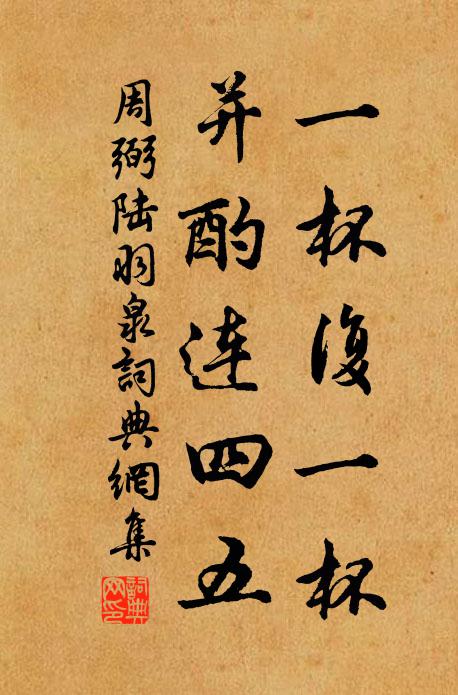 一杯復一杯
并酌连四五
周弼陆羽泉詞典網集
詞典網印